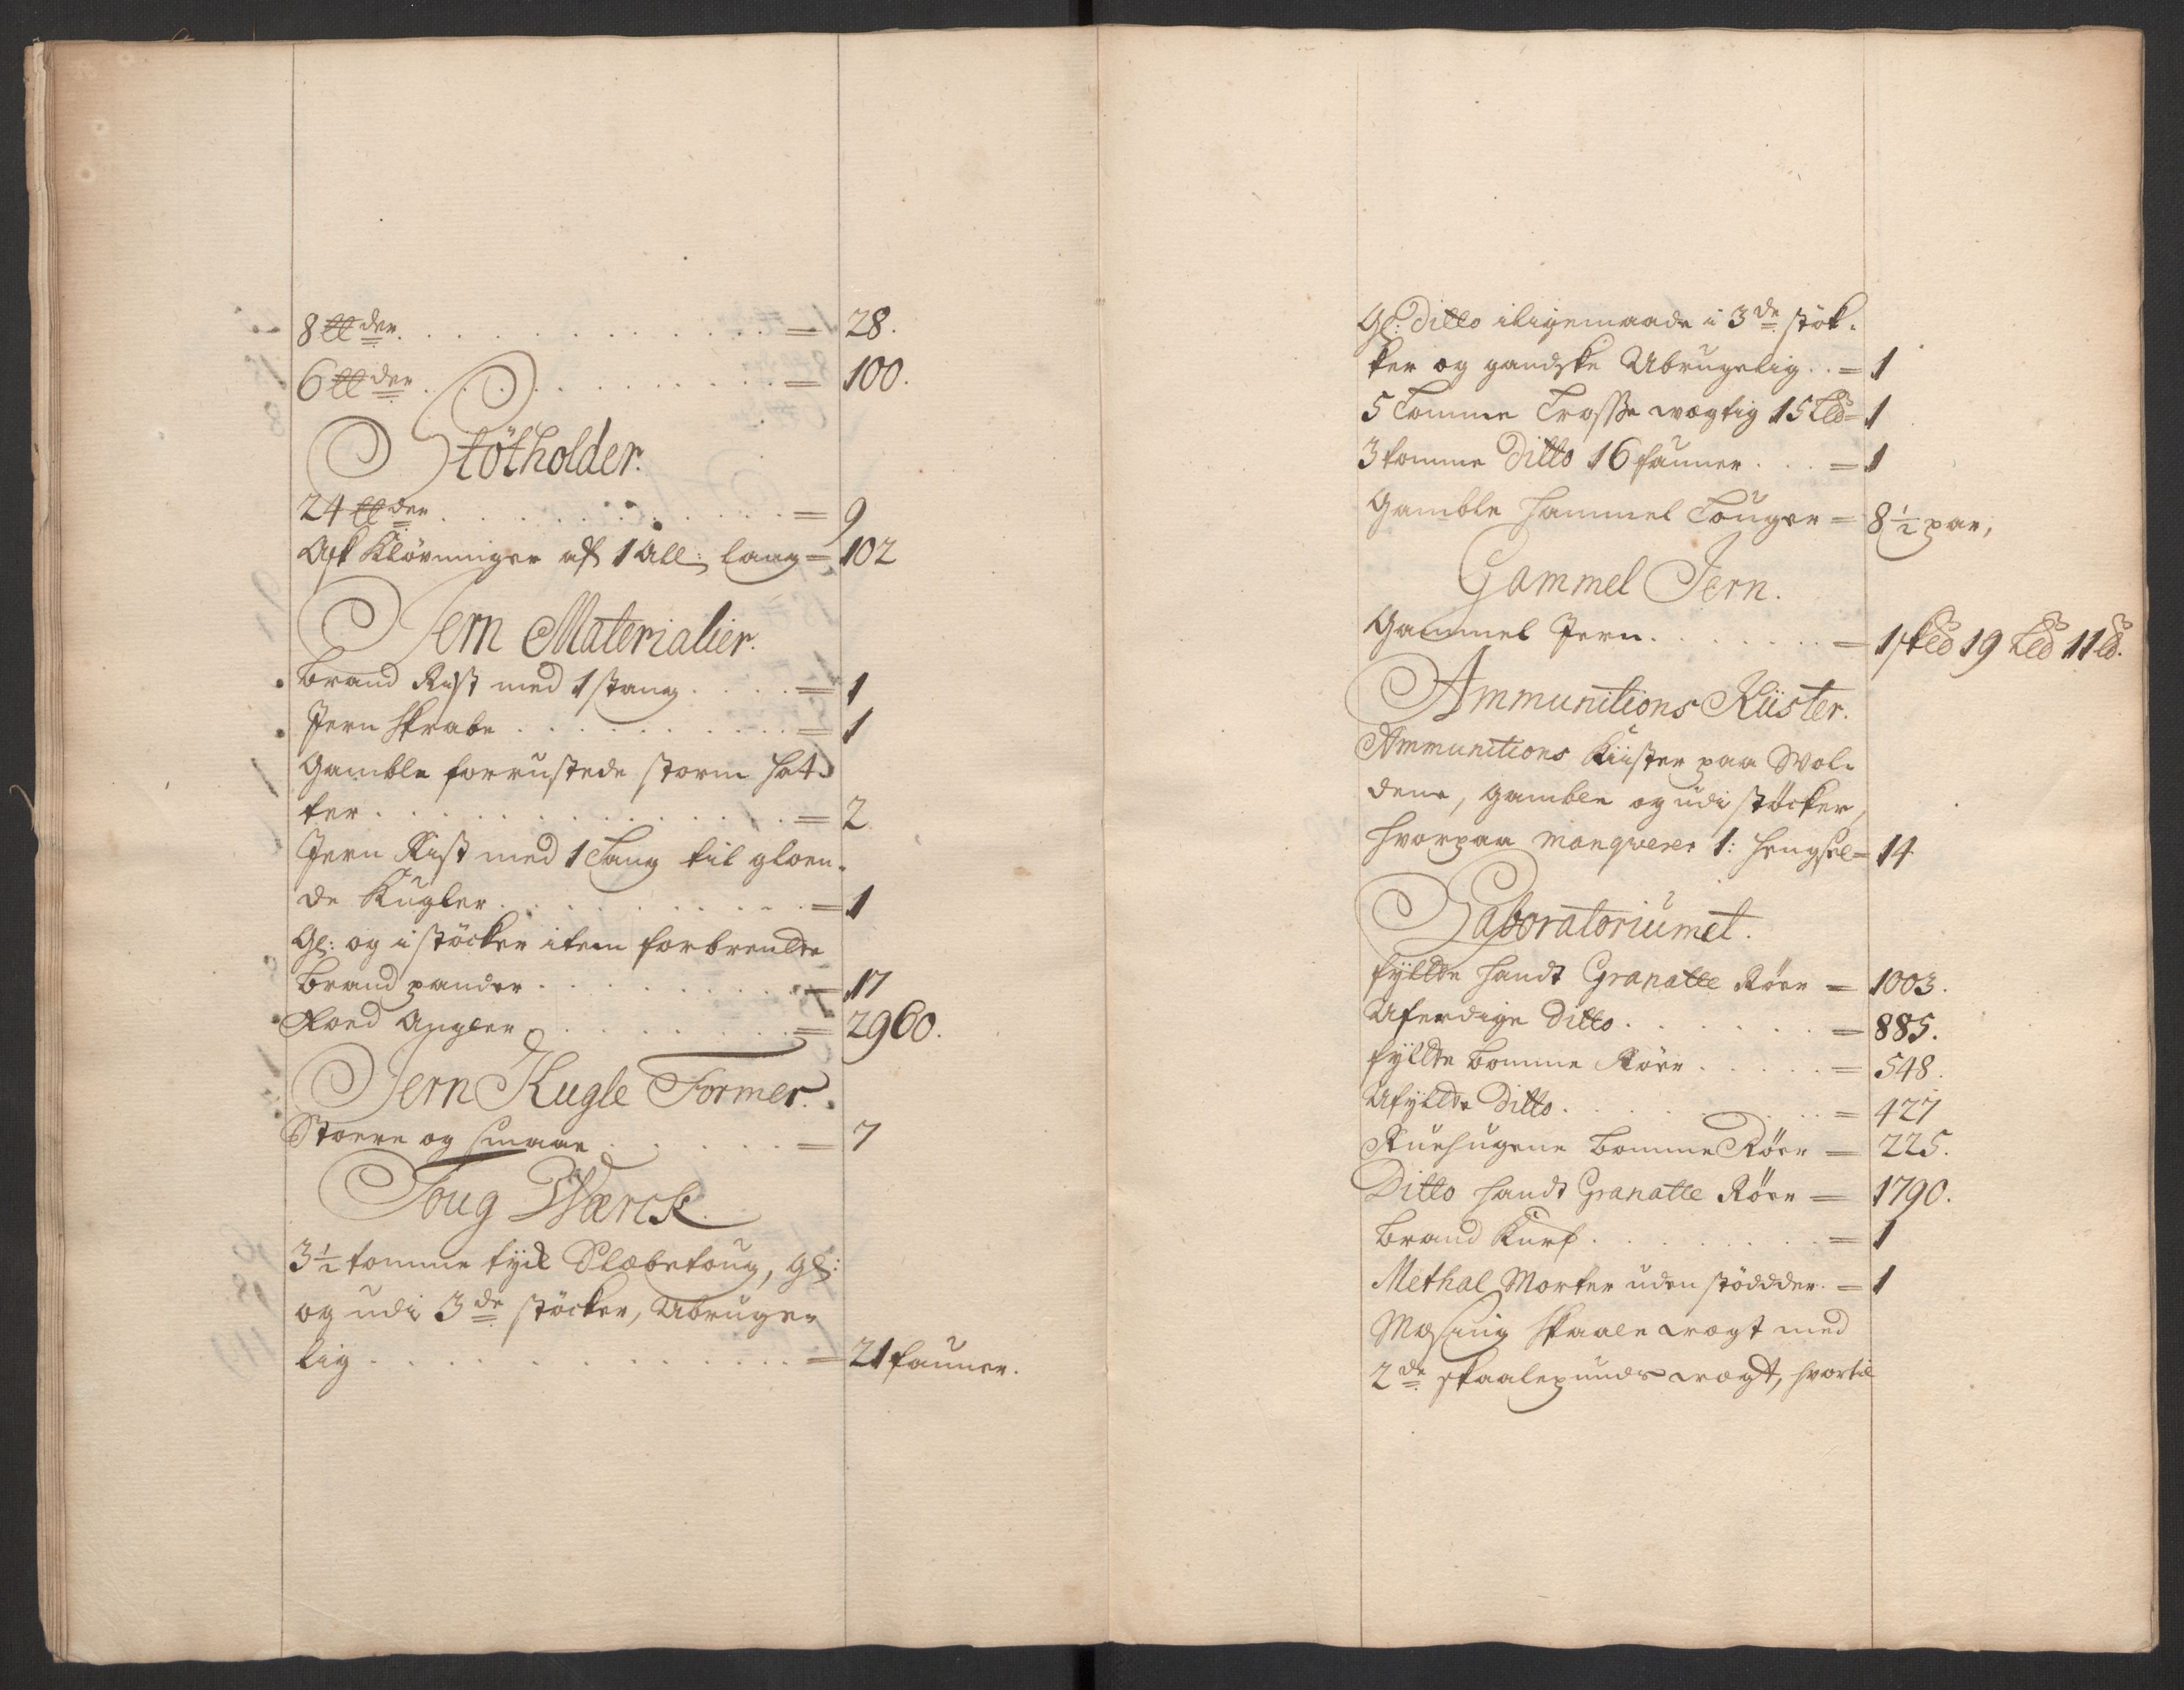 8 ℔der . . . . . . . = 28.
6 ℔der . . . . . . . = 100.
Stötholder.
24 ℔der . . . . . . . = 9
Ask Klövninger af 1 All: lang = 102
Jern Materialier.
Brand Rist med 1 stang . . . . = 1
Jern skrabe . . . . . . . = 1
Gamble forrustede storm hat-
ter . . . . . . . = 2
Jern Rist med 1 Tang til gloen-
de Kugler . . . . . . . = 1
Gl: og i stöcker item forbrendte
Brand pander . . . . . . . = 17
Foed Angler . . . . . . . = 2960.
Jern Kugle Former.
Stoere og smaae . . . . . = 7
Toug Værck.
3½ tomme tyck Slæbetoug, gl:
og udi 3de stöcker, Ubruge-
lig . . . . . . . = 21 faüner.
Gl: Ditto iligemaade i 3de stök-
ker og gandske Ubrugelig . . = 1
5 Tomme Trosse vægtig 15 L℔ = 1
3 tomme Ditto 16 faüner . . . = 1
Gamble Hammel Touger = 8½ par,
Gammel Jern.
Gammel Jern . . . . . . . = 1 sk℔ 19 L℔ 11 ℔.
Ammunitions Kiister.
Ammunitions Kiister paa Vol-
dene, gamble og udi stöcker,
hvorpaa manqverer 1: Hengsel = 14
Laboratoriumet.
fyldte Handt Granatte Röer = 1003.
Uferdige Ditto . . . . . . . = 885.
fyldte Bomme Röer . . . . . = 548.
Ufyldte Ditto . . . . . . . = 427
Ruehugene Bomme Röer = 225.
Ditto Handt Granatte Röer = 1790.
Brand Kurf . . . . . . . = 1
Methal Morter uden stöddder. = 1
Mæsing skaale vægt med
2de skaalepunds vægt, hvortil